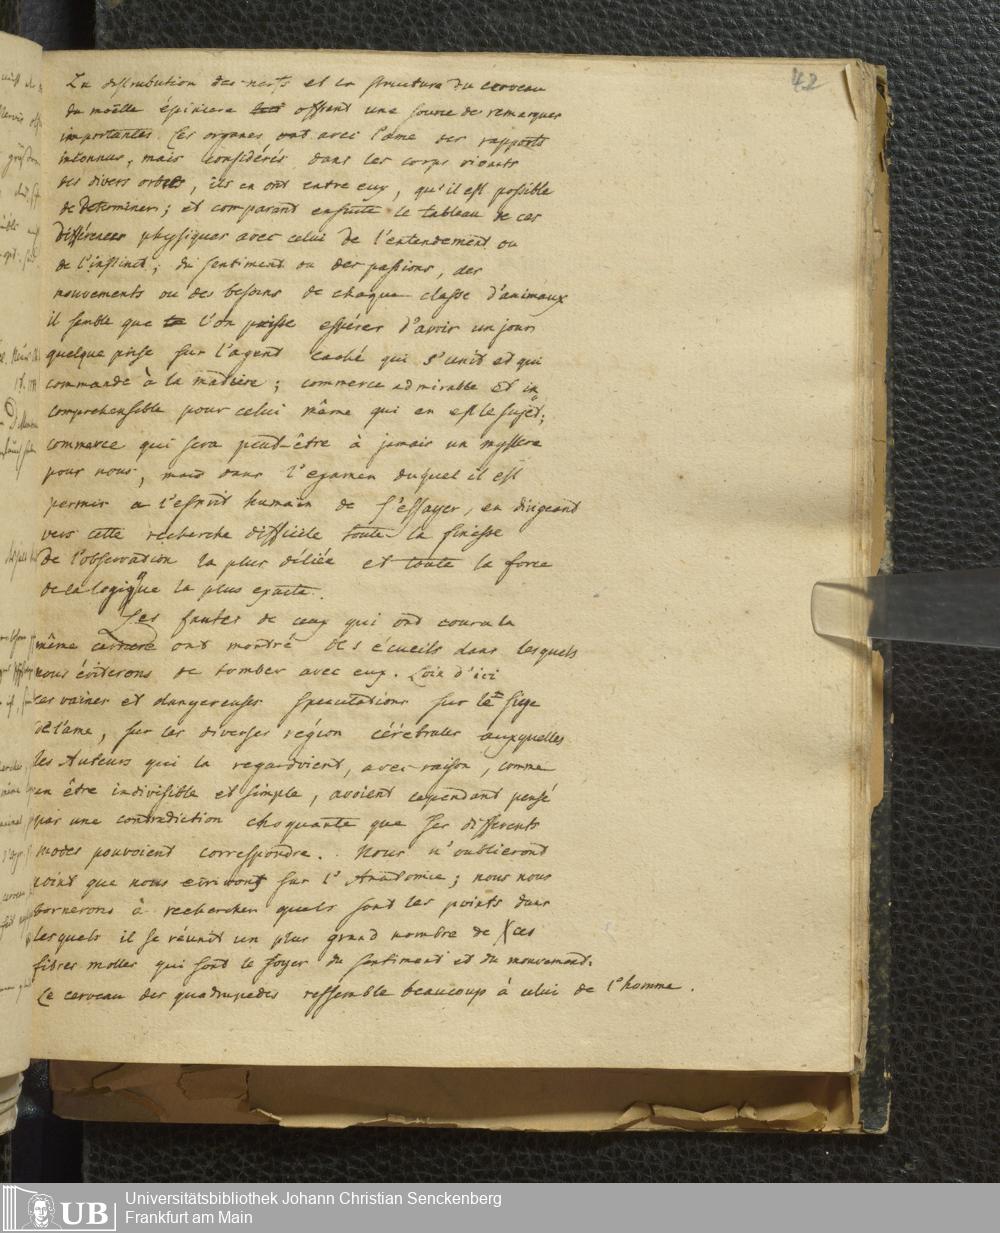 42
La distribution des nerfs et la structure du cerveau
du moëlle épiniere offrent une source de remarques
importantes. Ces organes ont avec l'ame des rapports
inconnus, mais considérés dans les corps vivants
des divers orbes, ils en ont entre eux, qu'il est possible
de determiner; et comparant ensuite le tableau de ces
différences physiques avec celui de l'entendement ou
de l'instinct; du sentiment ou des passions, des
mouvements ou des besoins de chaque classe d'animaux
il semble que l'on puisse espérer d'avoir un jour
quelque prise sur l'agent caché qui s'unit et qui
commande à la matiere; commerce admirable et in
comprehensible pour celui même qui en est le sujet;
commerce qui sera peut-être à jamais un mystere
pour nous, mais dans l'examen duquel il est
permis a l'esprit humain de s'essayer, en dirigeant
vers cette recherche difficile toute la finesse
de l'observation la plus déliée et toute la force
de la logique la plus exacte.
Les fautes de ceux qui ont couru la
même carriere ont montré des écueils dans lesquels
nous éviterons de tomber avec eux. Loin d'ici
ces vaines et dangereuses speculations sur le siege
de l'ame, sur les diverses région cérébrales auxquelles
les Auteurs qui la regardoient, avec raison, comme
un être indivisible et simple, avoient cependant pensé
par une contradiction choquante que ses differents
modes pouvoient correspondre. Nous n'oublieront
point que nous ecrivons sur l'Anatomie; nous nous
bornerons à rechercher quels sont les points dans
lesquels il se réunit un plus grand nombre de ces
fibres molles qui sont le foyer du sentiment et du mouvement.
Le cerveau des quadrupedes ressemble beaucoup à celui de l'homme.
UB
Universitätsbibliothek Johann Christian Senckenberg
Frankfurt am Main